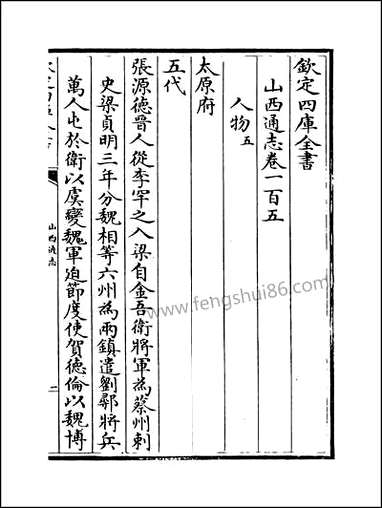 欽定四庫全書
山西通志卷一百五
人物五
太原府
五代
張源德晉人從李罕之入梁自金吾衛將軍為蔡州刺
史梁貞明三年分魏相等六州為兩鎮遣劉鄩將兵
萬人屯於衛以虞變魏軍迫節度使賀德倫以魏博
山西通志
www.fengshui86.com